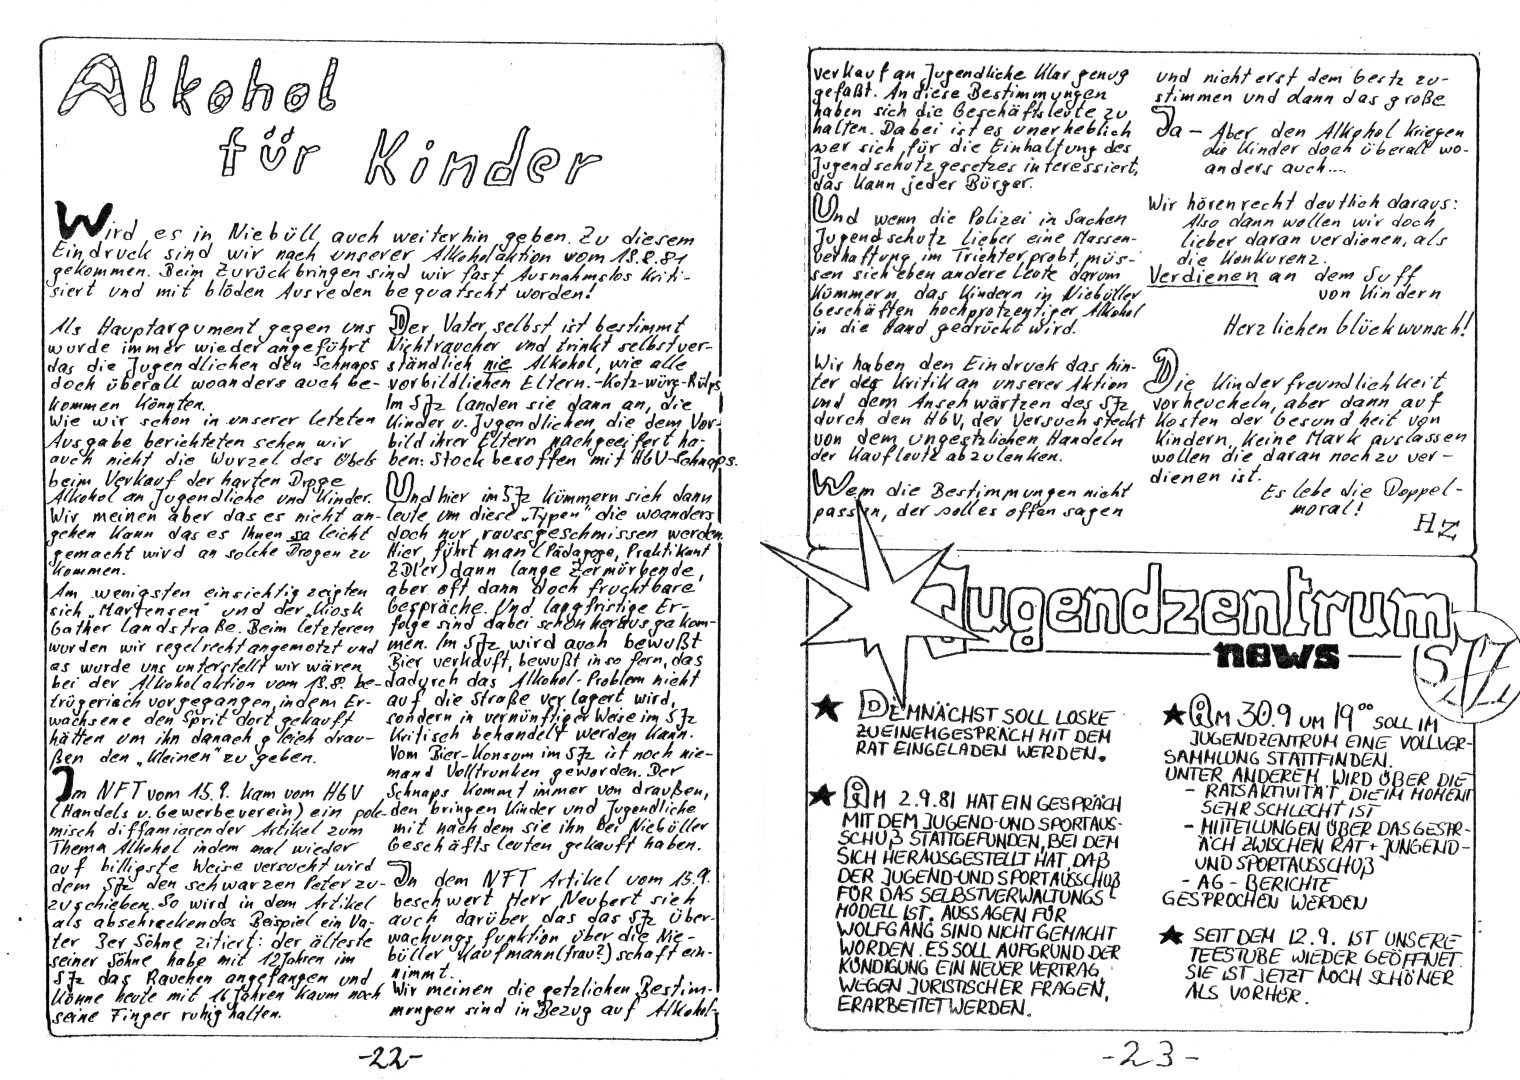 Alkohol
für Kinder
Wird es in Niebüll auch weiterhin geben. Zu diesem
Eindruck sind wir nach unserer Alkoholaktion vom 18.8.81
gekommen. Beim Zurückbringen sind wir fast Ausnahmslos Kriti-
siert und mit blöden Ausreden bequatscht worden!
Als Hauptargument gegen uns
wurde immer wieder angeführt
das die Jugendlichen den Schnaps
doch überall woanders auch be-
kommen könnten.
Wie wir schon in unserer letzten
Ausgabe berichteten sehen wir
auch nicht die Wurzel des Übels
beim Verkauf der harten Droge
Alkohol an Jugendliche und Kinder.
Wir meinen aber das es nicht an-
gehen kann das es Ihnen sa leicht
gemacht wird an solche Drogen zu
kommen.
Am wenigsten einsichtig zeigten
sich „Martensen" und der Kiosk
Gather Landstraße. Beim letzteren
wurden wir regelrecht angemotzt und
es wurde uns unterstellt wir wären
bei der Alkoholaktion vom 18.8. be-
trügerisch vorgegangen, indem Er-
wachsene den Sprit dort gekauft
hätten um ihn danach gleich drau-
ßen den „Kleinen" zu geben.
Im NFT vom 15.9. kam vom HGV
(Handels u. Gewerbeverein) ein pole-
misch diffamierender Artikel zum
Thema Alkohol indem mal wieder
auf billigste Weise versucht wird
dem SJZ den schwarzen Peter zu-
zuschieben. So wird in dem Artikel
als abschreckendes Beispiel ein Va-
ter 3er Söhne zitiert: der älteste
seiner Söhne habe mit 12 Jahren im
SJZ das Rauchen angefangen und
könne heute mit 16 Jahren kaum noch
seine Finger ruhig halten.
Der Vater, selbst ist bestimmt
Nichtraucher und trinkt selbstver-
ständlich nie Alkohol, wie alle
vorbildlichen Eltern. -Kotz-würg-Rülps
Im SJZ landen sie dann an, die
Kinder u. Jugendlichen, die dem Vor-
bild ihrer Eltern nachgeeifert ha-
ben: Stock besoffen mit HGV-Schnaps.
Und hier im SJZ kümmern sich dann
leute um diese „Typen" die woanders
doch nur rausgeschmissen werden.
Hier führt man (Pädagoge, Praktikant
ZDl'er) dann lange zermürbende,
aber oft dann doch fruchtbare
Gespräche. Und langfristige Er-
folge sind dabei schon herausgekom-
men. Im SJZ wird auch bewußt
Bier verkauft, bewußt inso fern, das
dadurch das Alkohol-Problem nicht
auf die Straße verlagert wird,
sondern in vernünftiger Weise im SJZ
Kritisch behandelt werden kann.
Vom Bier-Konsum im SJZ ist noch nie-
mand Volltrunken geworden. Der
Schnaps kommt immer von draußen,
den bringen Kinder und Jugendliche
mit nach dem sie ihn bei Niebüller
Geschäfts leuten gekauft haben.
In dem NFT Artikel vom 15.9.
beschwert Herr Neubert sich
auch darüber das das SJZ Über-
wachungs funktion über die Nie-
büller Kaufmann(frau?) schaft ein-
nimmt.
Wir meinen die getzlichen Bestim-
mungen sind in Bezug auf Alkohol-
-22-
verkauf an Jugendliche klar genug
gefaßt. An diese Bestimmungen
haben sich die Geschäftsleute zu
halten. Dabei ist es unerheblich
wer sich für die Einhaltung des
Jugendschutzgesetzes interessiert,
das kann jeder Bürger.
Und wenn die Polizei in Sachen
Jugendschutz lieber eine Massen-
verhaftung im Trichter probt, müs-
sen sich eben andere Leute darum
kümmern, das Kindern in Niebüller
Geschäften hochprozentiger Alkohol
in die Hand gedrückt wird.
Wir haben den Eindruck das hin-
ter der Kritik an unserer Aktion
und dem Anschwärtzen des SJZ
durch den HGV, der Versuch steckt
von dem ungestzlichen Handeln
der Kaufleute abzulenken.
Wem die Bestimmungen nicht
passen, der soll es offen sagen
und nicht erst dem bestz zu-
stimmen und dann das große
Ja - Aber den Alkohol kriegen
die Kinder doch überall wo-
anders auch....
Wir hören recht deutlich daraus:
Also dann wollen wir doch
lieber daran verdienen, als
die Konkurenz.
Verdienen an dem Suff
von Kindern
Herzlichen Glückwunsch!
Die Kinderfreundlichkeit
vorheucheln, aber dann auf
Kosten der Gesundheit von
Kindern, keine Mark auslassen
wollen die daran noch zu ver-
dienen ist.
Es lebe die Doppel-
moral!
HZ
Jugendzentrum
news
SJZ
★ DEMNÄCHST SOLL LOSKE
ZU EINEM GESPRÄCH MIT DEM
RAT EINGELADEN WERDEN.
★ AM 2.9.81 HAT EIN GESPRÄCH
MIT DEM JUGEND-UND SPORTAUS-
SCHUß STATTGEFUNDEN, BEI DEM
SICH HERAUSGESTELLT HAT, DAß
DER JUGEND-UND SPORTAUSSCHUß
FÜR DAS SELBSTVERWALTUNGS-
MODELL IST. AUSSAGEN FÜR
WOLFGANG SIND NICHT GEMACHT
WORDEN. ES SOLL AUFGRUND DER
KÜNDIGUNG EIN NEUER VERTRAG,
WEGEN JURISTISCHER FRAGEN,
ERARBEITET WERDEN.
★ AM 30.9 UM 19°° SOLL IM
JUGENDZENTRUM EINE VOLLVER-
SAMMLUNG STATTFINDEN.
UNTER ANDEREM WIRD ÜBER DIE
- RATSAKTIVITÄT DIE IM MOMENT
SEHR SCHLECHT IST
- MITTEILUNGEN ÜBER DAS GESPR-
ÄCH ZWISCHEN RAT + JUNGEND-
UND SPORTAUSSCHUß
- AG - BERICHTE
GESPROCHEN WERDEN
★ SEIT DEM 12.9. IST UNSERE
TEESTUBE WIEDER GEÖFFNET.
SIE IST JETZT NOCH SCHÖNER
ALS VORHER.
-23-